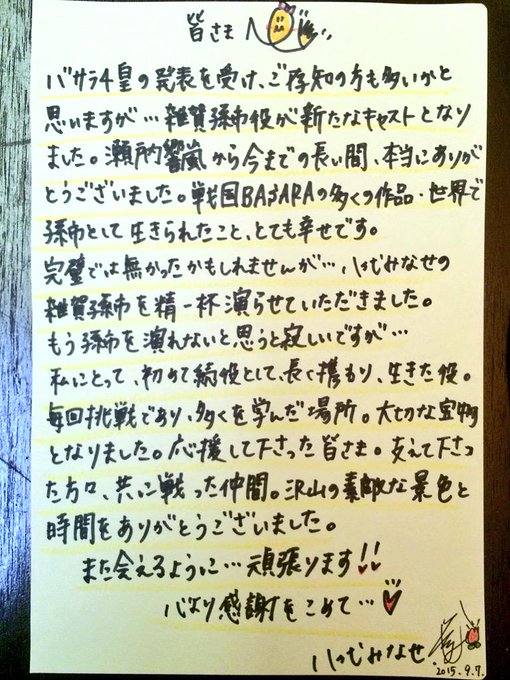 皆さまへ
バサラ4皇の発表を受け、ご存知の方も多いかと
思いますが…雑賀孫市役が新たなキャストとなり
ました。瀬戸内響嵐から今までの長い間、本当にありが
とうございました。戦国BASARAの多くの作品・世界で
孫市として生きられたこと、とても幸せです。
完璧では無かったかもしれませんが…、はむみなせの
雑賀孫市を精一杯演らせていただきました。
もう孫市を演れないと思うと寂しいですが…
私にとって、初めて続役として、長く携わり、生きた役。
毎回挑戦であり、多くを学んだ場所。大切な宝物
となりました。応援して下さった皆さま。支えて下さっ
た方々、共に戦った仲間。沢山の素敵な景色と
時間をありがとうございました。
また会えるように…頑張ります!!
心より感謝をこめて…
はむみなせ
2015.9.7.